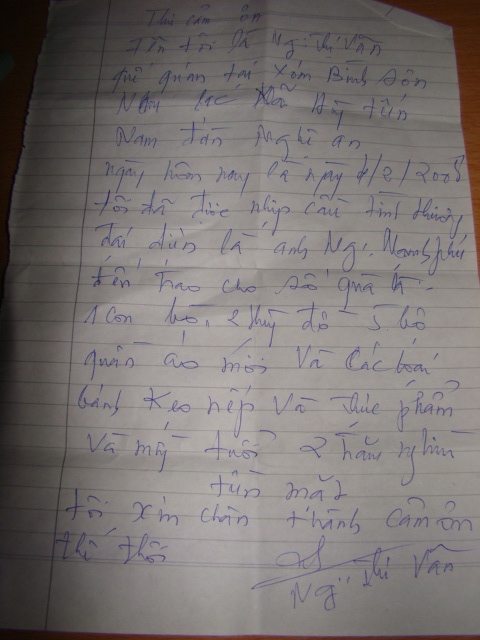 Thư cảm ơn
Tên tôi là Ng: Thị Vân
quê quán tại xóm Bình Sơn
xã Hùng tiến
Nam đàn Nghệ an
ngày hôm nay là ngày 4/2/2008
tôi đã được nhịp cầu tình thương
đại diện là anh Ng: Mạnh phú
đến trao cho số quà là -
1 con bò, 2 thùng đồ - 5 bộ
quần áo mới và các loại
bánh kẹo nếp và thực phẩm
và mỳ tuổi 2 trăm nghìn
tiền mặt
tôi xin chân thành cảm ơn
thế thôi
Ng: thị Vân